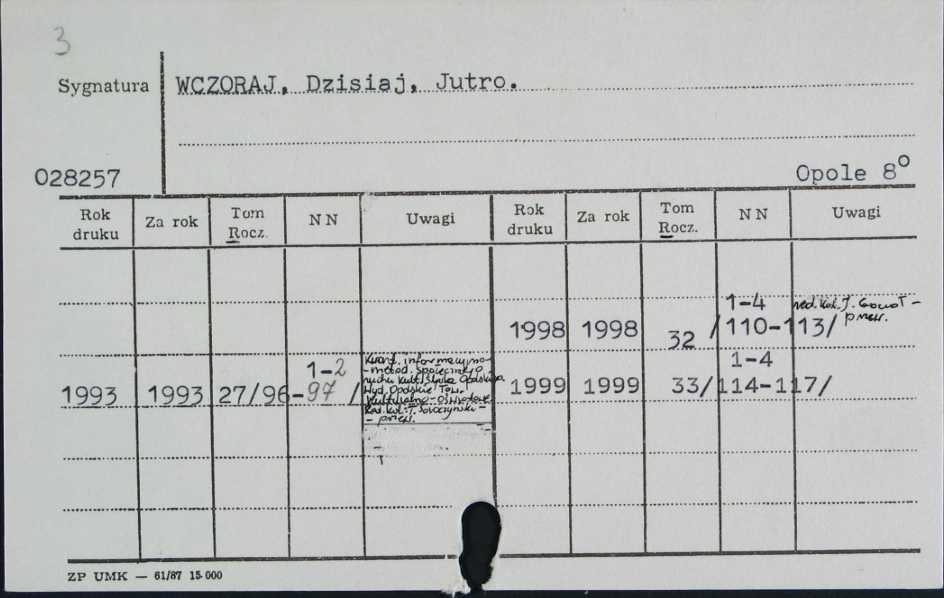 3
Sygnatura WCZORAJ, Dzisiaj, Jutro.
028257 Opole 8°
Rok druku Za rok Tom Rocz. NN Uwagi Rok druku Za rok Tom Rocz. NN Uwagi
1-4 red. Kol. J.
1998 1998 32 /110-113/ przew.
1-2 Kwart. informacyjno-
-metod. społecznego
ruchu kult. Śląska Opolskiego
Wyd. Opolskie Tow.
Kulturalno-Oświatowe
Red. Kol. J.
- przew.
1993 1993 27/96-97/
1-4
1999 1999 33/114-117/
ZP UMK — 61/87 15 000